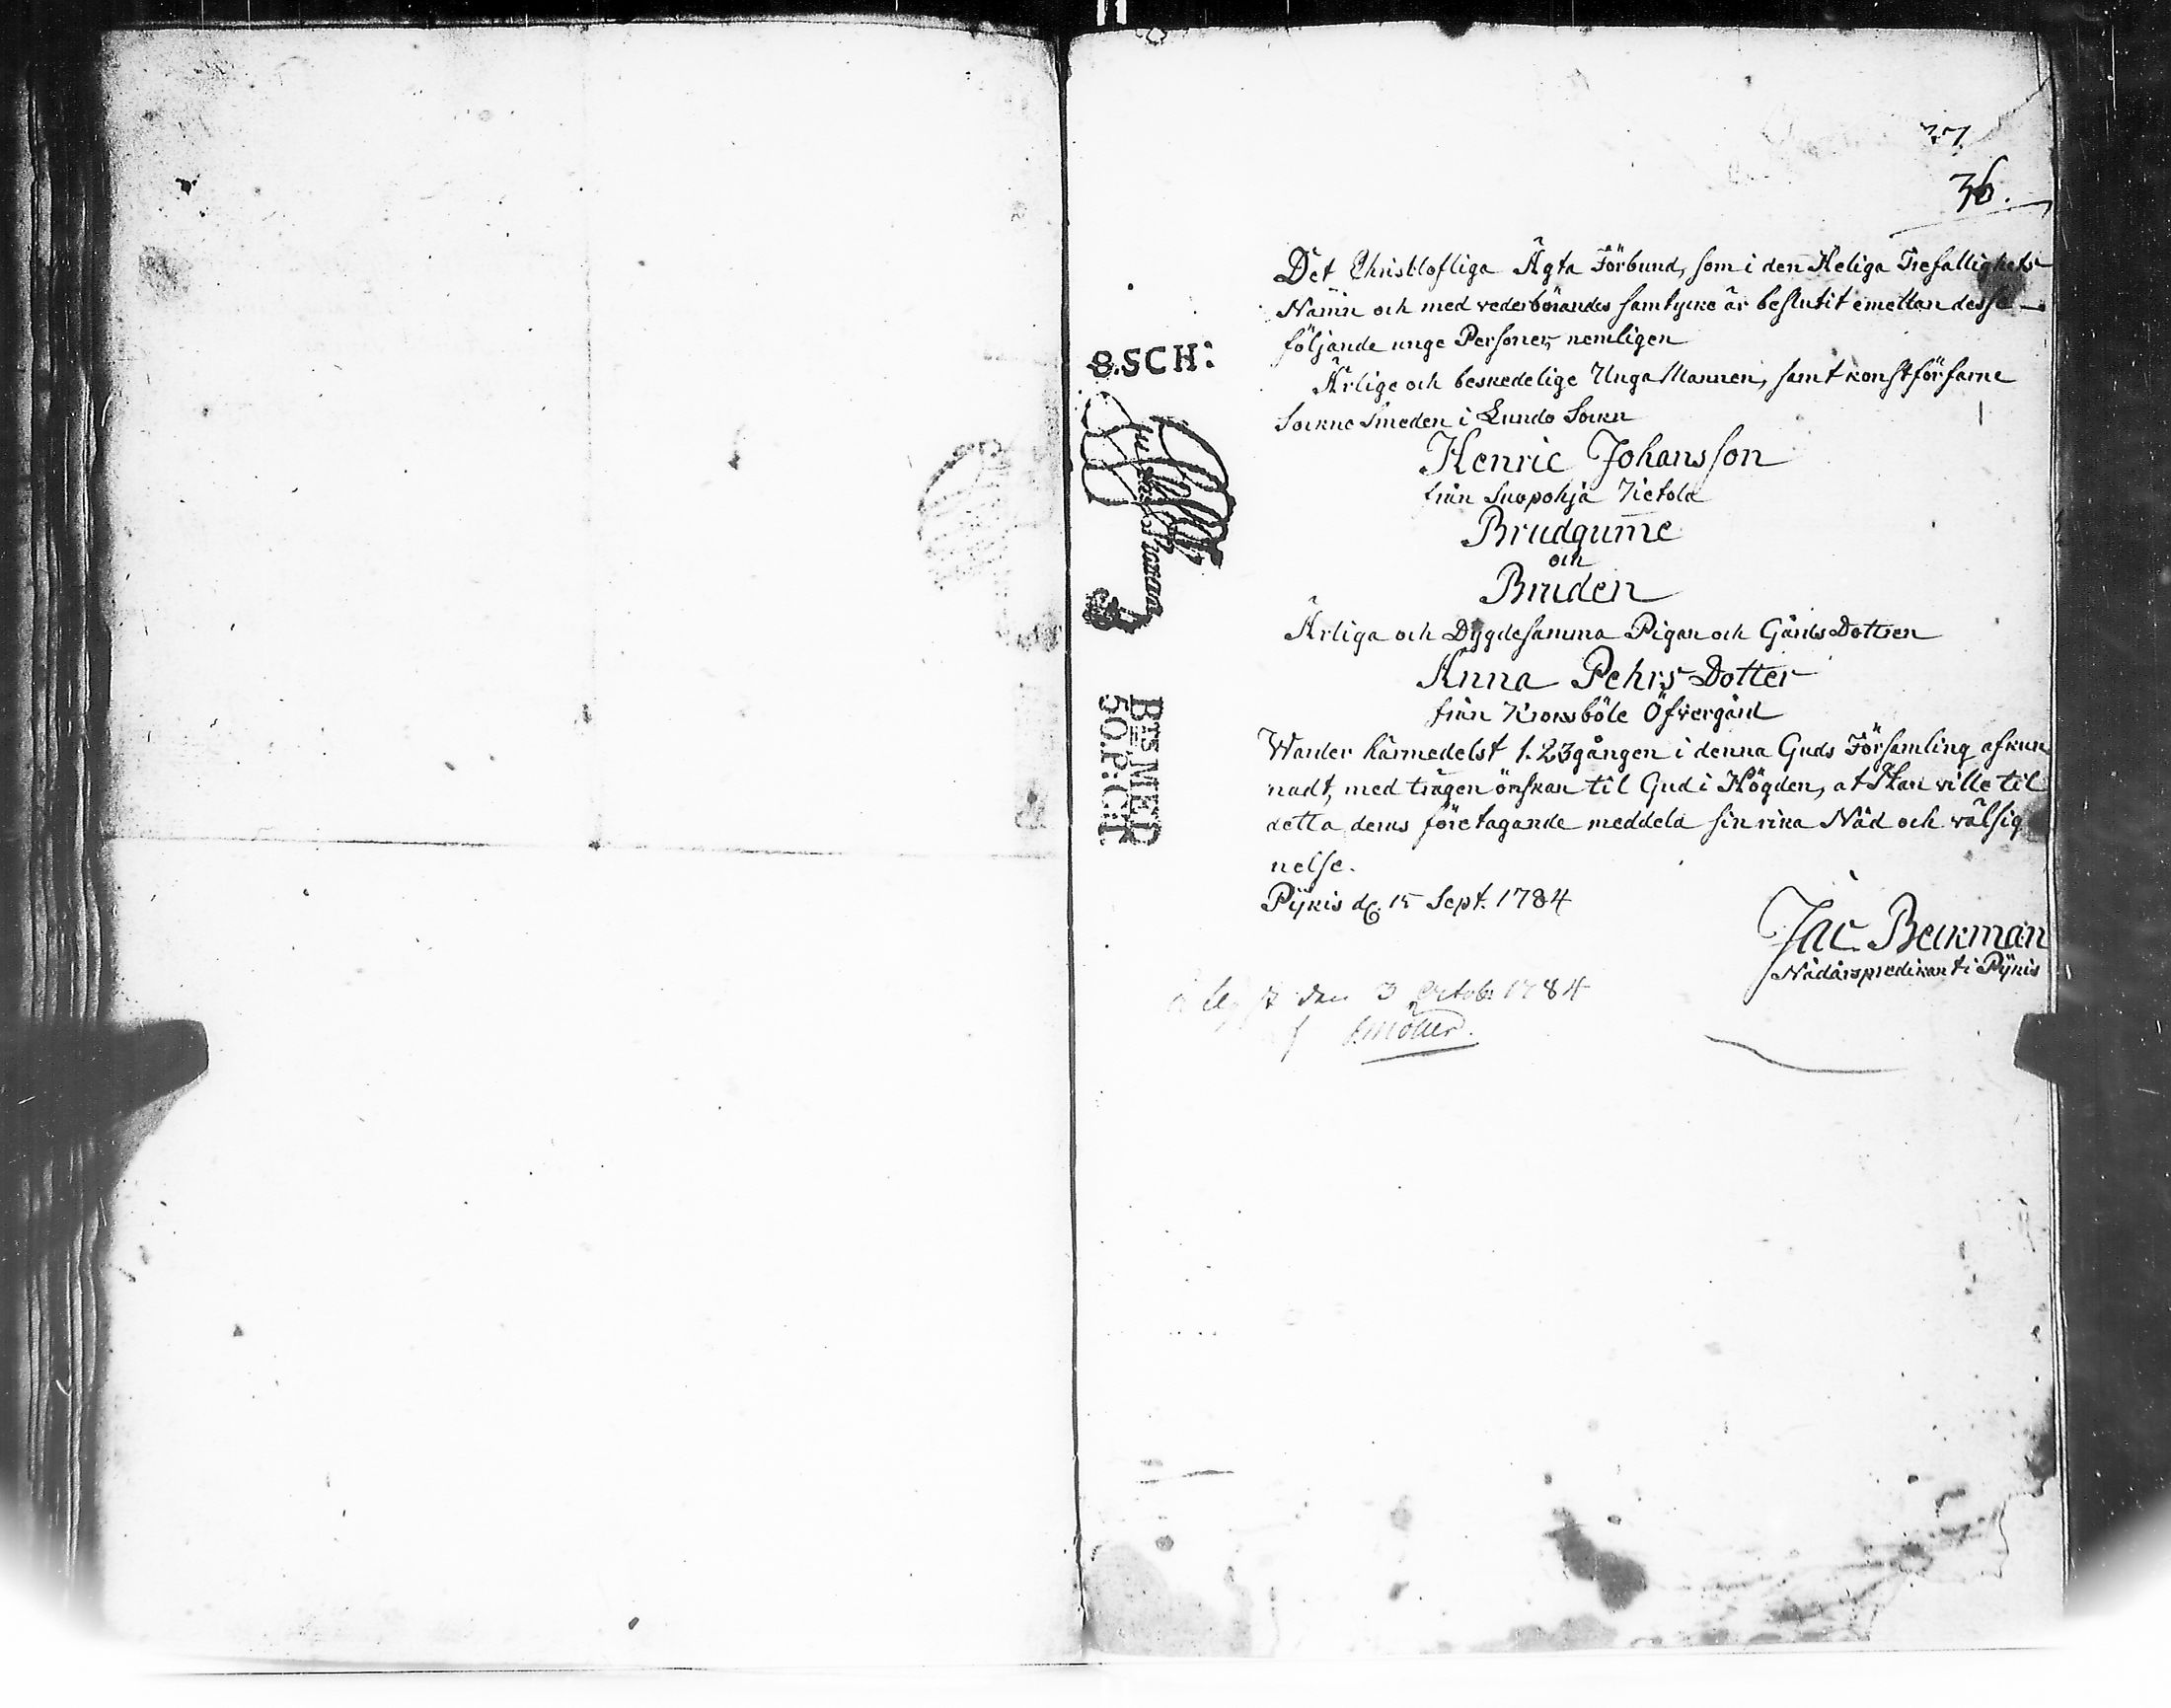 77.
36.
Det Christlofliga Ägta Förbund, som i den Heliga Trefallighets
Namn och med vederbörandes samtycke är beslutit emellan desse
följande unge Personer, nemligen
Ärlige och beskedelige Unga Mannen, samt konstförfarne
Sockne Smeden i Lundo Sockn
Henric Johansson
från Suopohja Kietola
Brudgume
och
Bruden
Ärliga och Dygdesamma Pigan och GårdsDottren
Anna Pehrs Dotter
från Kronsböle Öfvergård
Warder härmedelst 1. 2 3 gången i denna Guds Församling afkun
nadt, med trägen önskan til Gud i Högden, at Han ville til
detta deras företagande meddela sin rika Nåd och välsig
nelse.
Pÿkis d. 15 Sept. 1784
Jac Beckman
Nådårspredikant i Pÿkis
den 3 Octobr 1784
8.SCH:
BTS MED
50.P:CT.